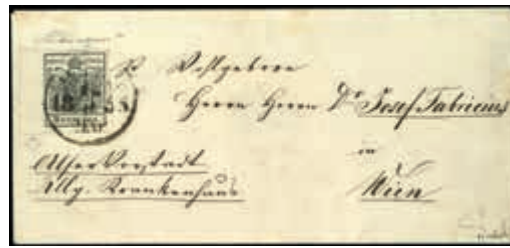 Wohlgeboren
Herrn Herrn Dr Josef Fabricius
in
Wien
Alservorstadt
Allg. Krankenhaus